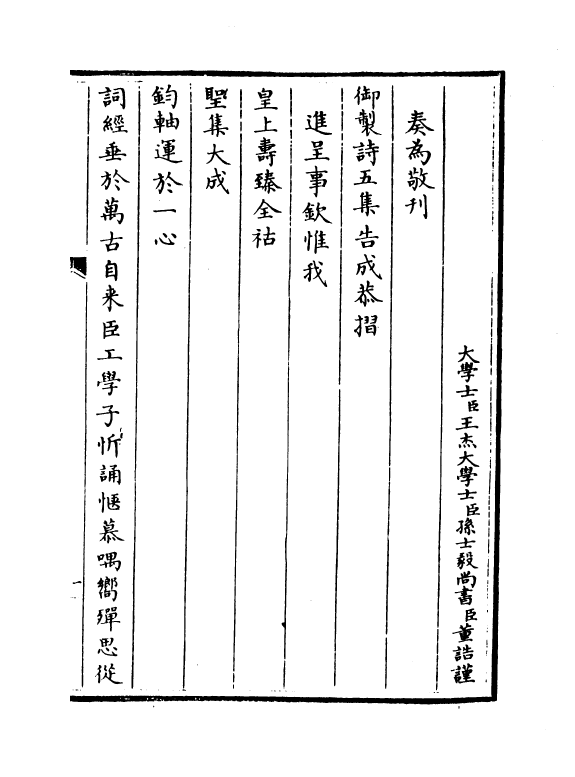 大學士臣王杰大學士臣孫士毅尚書臣董誥謹
奏為敬刊
御製詩五集告成恭摺
進呈事欽惟我
皇上壽臻全祜
聖集大成
鈞軸運於一心
詞經垂於萬古自来臣工學子忻誦愜慕喁嚮殫思從